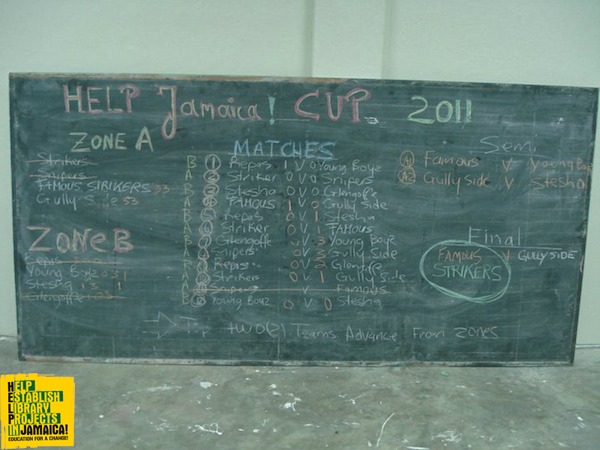 HELP Jamaica! CUP 2011
ZONE A
Strikers
Snipers
FAMOUS STRIKERS 33
Gully Side 53
ZONE B
Repis
Young Boyz 031
Stesha 13 1
Glengoffe 103
MATCHES
B 1 Repis 1 V 0 Young Boyz
A 2 Striker 0 V 0 Snipers
B 3 Stesha 0 V 0 Glengoffe
A 4 FAMOUS 1 0 Gully Side
B Repis 0 1 Stesha
A Striker 0 1 FAMOUS
B Glengoffe 0 3 Young Boyz
A Snipers 0 3 Gully Side
Repis 0 Glengoffe
Strikers 0 1 Gully Side
Snipers V Famous
B Young Boyz 0 V 0 Stesha
Top two(2) Teams Advance From Zones
Semi
A1 Famous V Young Boyz
A2 Gully Side V Stesha
Final
FAMOUS V GULLY SIDE
STRIKERS
HELP
ESTABLISH
LIBRARY
PROJECTS
IN JAMAICA!
EDUCATION FOR A CHANGE!